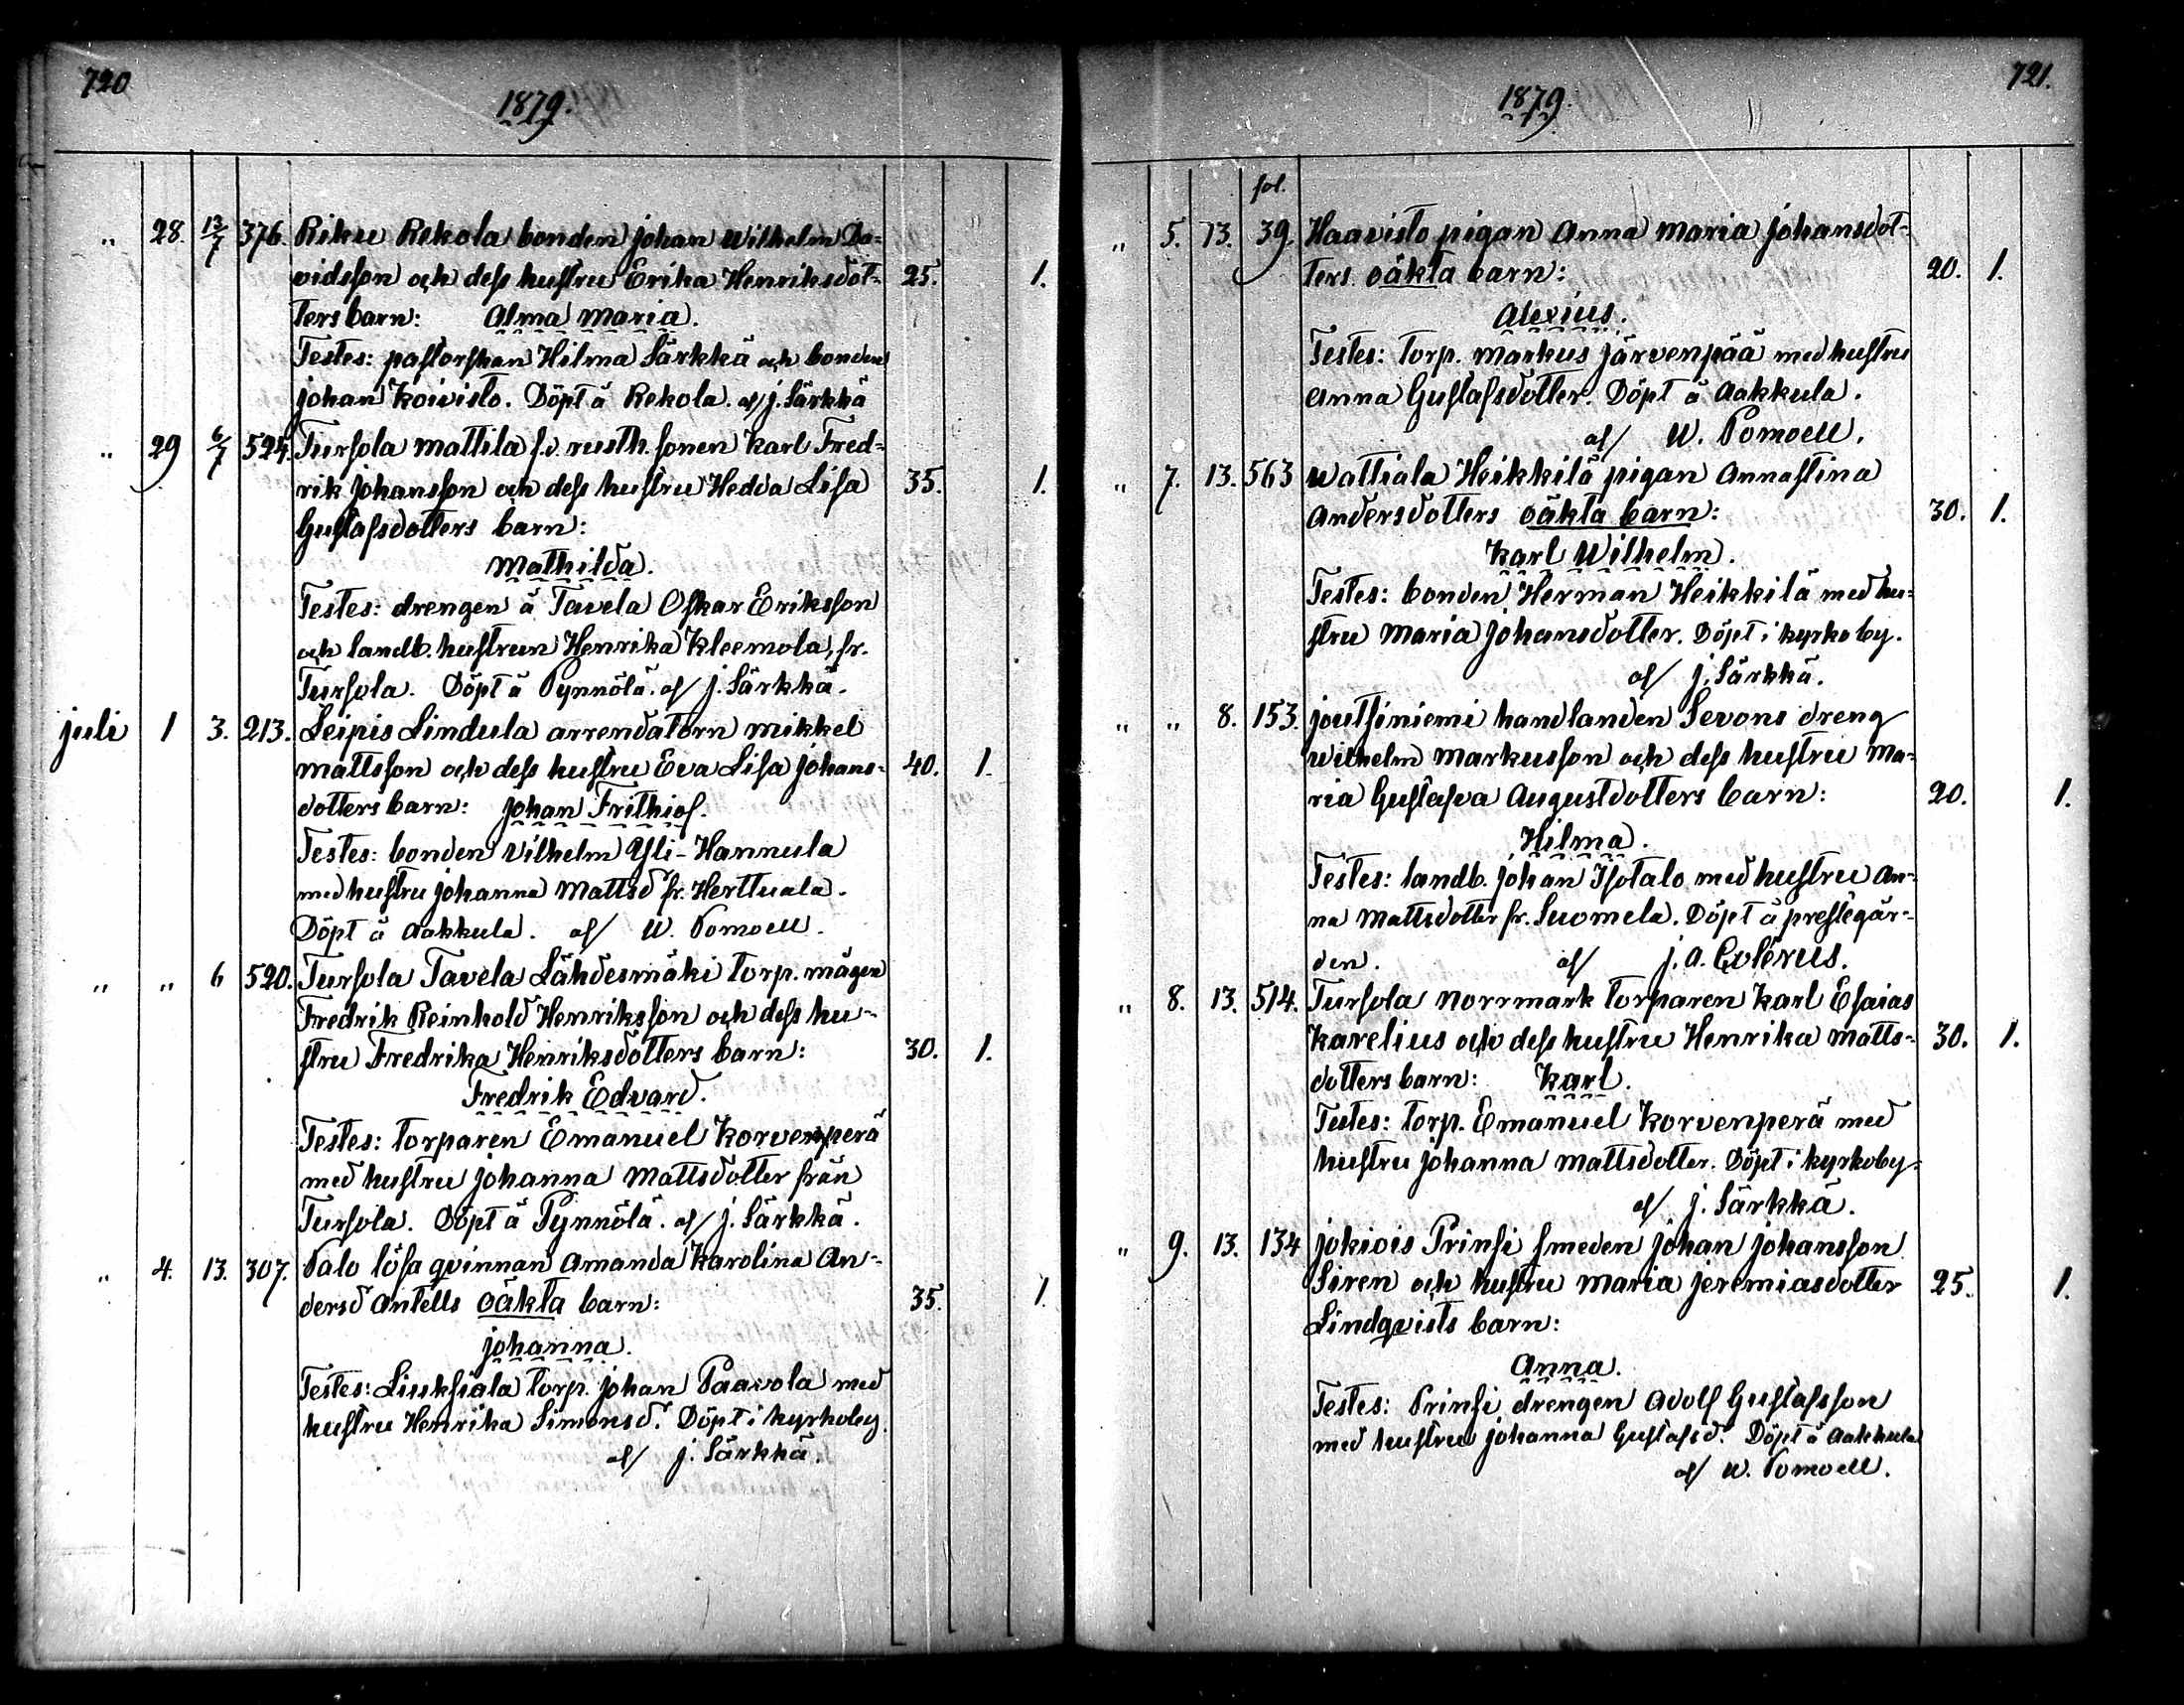 720
1879.
„ 28. 13/7 376. Riku Rekola bonden Johan Wilhelm Da-
vidsson och dess hustru Erika Henriksdot- 25. 1.
ters barn: Alma Maria.
Testes: pastorskan Hilma Särkkä och bonden
Johan Koivisto. Döpt å Rekola. af/ J. Särkkä
„ 29 6/7 524. Tursola Mattila f.d. rusth. sonen Karl Fred-
rik Johansson och dess hustru Hedda Lisa 35. 1.
Gustafsdotters barn:
Mathilda.
Testes: drengen å Tavela Oskar Eriksson
och landb. hustrun Henrika Kleemola, fr.
Tursola. Döpt å Pynnölä. af/ J. Särkkä.
Juli 1 3. 213. Leipis Lindula arrendatorn Mikkel
Mattsson och dess hustru Eva Lisa Johans- 40. 1.
dotters barn: Johan Frithiof.
Testes: bonden Vilhelm Yli-Hannula
med hustru Johanna Mattsd fr. Herttuala.
Döpt å Aakkula. af/ W. Pomoell.
„ „ 6 520. Tursola Tavela Lähdesmäki torp. mågen
Fredrik Reinhold Henriksson och dess hu-
stru Fredrika Henriksdotters barn: 30. 1.
Fredrik Edvard.
Testes: torparen Emanuel Korvenperä
med hustru Johanna Mattsdotter från
Tursola. Döpt å Pynnölä. af/ J. Särkkä.
„ 4. 13. 307. Palo lösa qvinnan Amanda Karolina An-
dersd Antells oäkta barn: 35. 1.
Johanna.
Testes: Liuksiala torp. Johan Paavola med
hustru Henrika Simonsd. Döpt i kyrkoby.
af/ J. Särkkä.
721.
1879.
fol.
„ 5. 13. 39. Haavisto pigan Anna Maria Johansdot-
ters oäkta barn: 20. 1.
Alexius.
Testes: torp. Markus Järvenpää med hustru
Anna Gustafsdotter. Döpt å Aakkula.
af/ W. Pomoell.
„ 7. 13. 563 Wattiala Heikkilä pigan Annastina
Andersdotters oäkta barn: 30. 1.
Karl Wilhelm.
Testes: bonden Herman Heikkilä med hu-
stru Maria Johansdotter. Döpt i kyrkoby.
af/ J. Särkkä.
„ „ 8. 153. Joutsiniemi handlanden Sevons dreng
Wilhelm Markusson och dess hustru Ma-
ria Gustafva Augustdotters barn: 20. 1.
Hilma.
Testes: landb. Johan Isotalo med hustru An-
na Mattsdotter fr. Suomela. Döpt å prestegår-
den. af/ J. A. Colérus.
„ 8. 13. 514. Tursola Norrmark torparen Karl Esaias
Karelius och dess hustru Henrika Matts- 30. 1.
dotters barn: Karl.
Testes: torp. Emanuel Korvenperä med
hustru Johanna Mattsdotter. Döpt i kyrkoby.
af/ J. Särkkä.
„ 9. 13. 134 Jokiois Prinsi smeden Johan Johansson
Siren och hustru Maria Jeremiasdotter 25. 1.
Lindqvists barn:
Anna.
Testes: Prinsi drengen Adolf Gustafsson
med hustru Johanna Gustafsd. Döpt å Aakkula
af/ W. Pomoell.